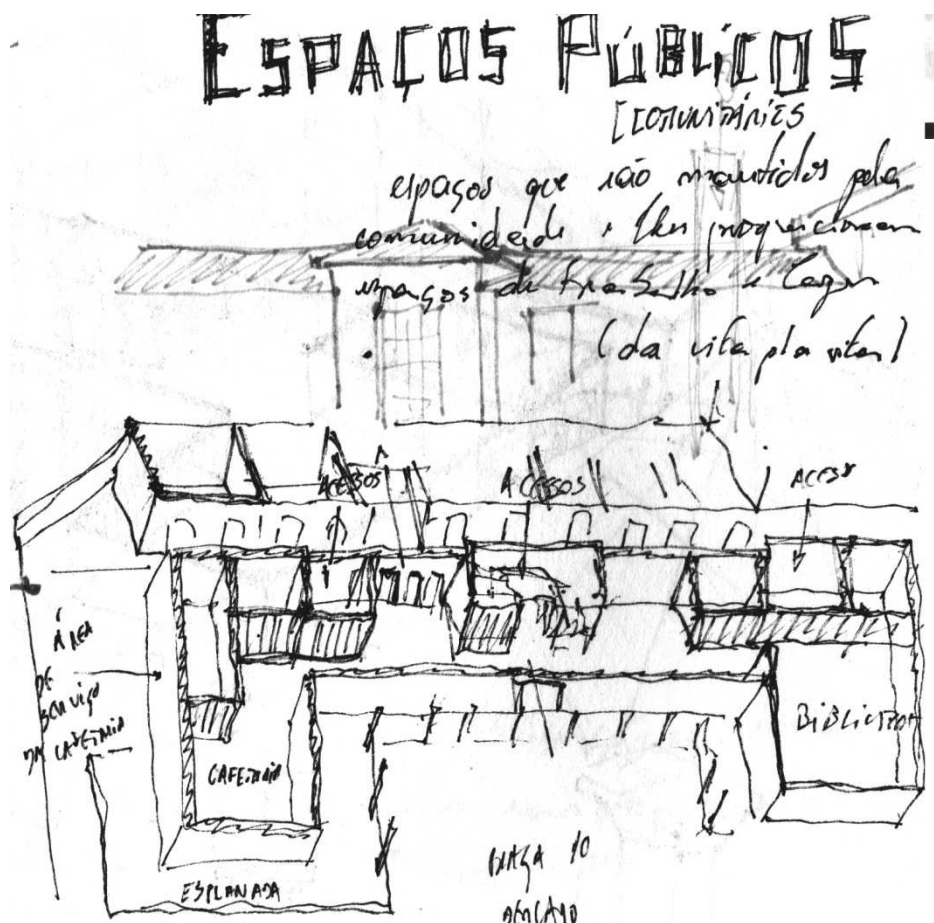 ESPAÇOS PÚBLICOS
[COMUNITÁRIES
espaços que são mantidos pela
comunidade e lhes proporcionam
espaços de trabalho e lazer
(da vila pla vila)
ACESSOS
ACESSOS
ACESS
ÁREA
DE
SERVIÇO
DA CAFETARIA
CAFETARIA
BIBLIOTECA
ESPLANADA
PRAÇA DO
MERCADO